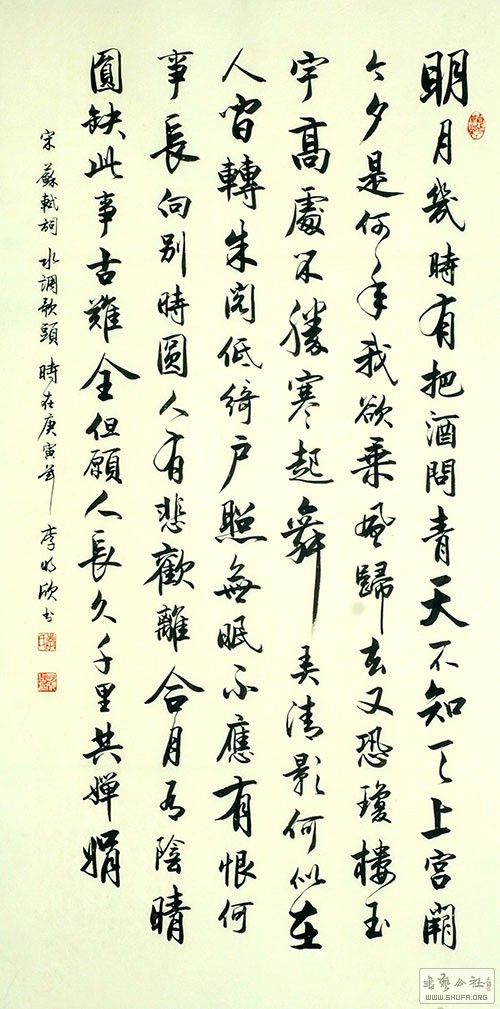 明月幾時有把酒問青天不知天上宮闕
今夕是何年我欲乘風歸去又恐瓊樓玉
宇高處不勝寒起舞弄清影何似在
人間轉朱閣低綺戶照無眠不應有恨何
事長向別時圓人有悲歡離合月有陰晴
圓缺此事古難全但願人長久千里共嬋娟
宋 蘇軾詞 水調歌頭 時在庚寅年 李欣書
書藝公社
WWW.SHUFA.ORG